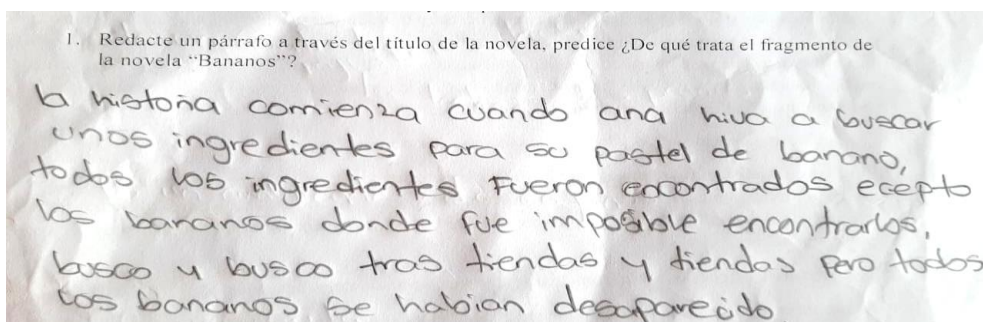 1. Redacte un párrafo a través del título de la novela, predice ¿De qué trata el fragmento de
la novela “Bananos”?
la historia comienza cuando ana hiva a buscar
unos ingredientes para su pastel de banano,
todos los ingredientes Fueron encontrados ecepto
los bananos donde fue imposible encontrarlos,
busco y busco tras tiendas y tiendas Pero todos
los bananos se habian desaparecido